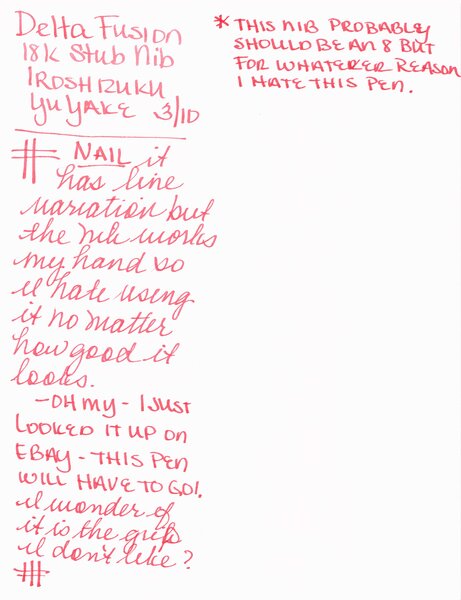 Delta Fusion
18K Stub Nib
IROSHIZUKU
YU YAKE 3/10
NAIL it
has line
variation but
the nib works
my hand so
I hate using
it no matter
how good it
looks.
-OH MY - I JUST
LOOKED IT UP ON
EBAY - THIS PEN
WILL HAVE TO GO!.
I wonder if
it is the grip
I don't like?
* THIS NIB PROBABLY
SHOULD BE AN 8 BUT
FOR WHATERER REASON
I HATE THIS PEN.